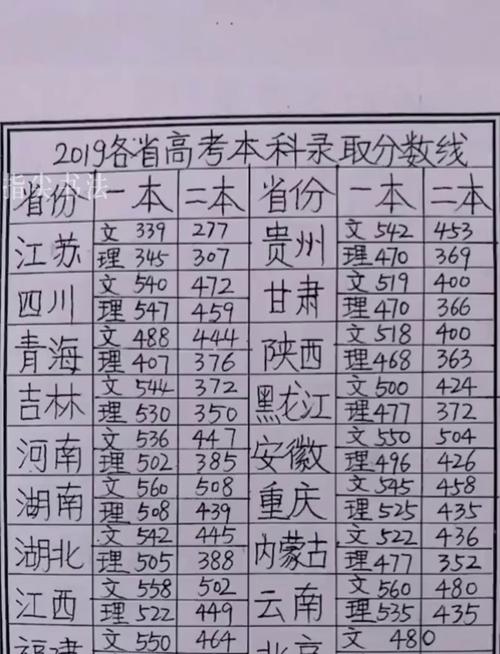 2019各省高考本科录取分数线
指尖书法
省份 一本 二本 省份 一本 二本
江苏 文 339 277 贵州 文 542 453
理 345 307 理 470 369
四川 文 540 472 甘肃 文 519 400
理 547 459 理 470 366
青海 文 488 444 陕西 文 518 400
理 407 376 理 468 363
吉林 文 544 372 黑龙江 文 500 424
理 530 350 理 477 372
河南 文 536 447 安徽 文 550 504
理 502 385 理 496 426
湖南 文 560 508 重庆 文 545 458
理 508 439 理 525 435
湖北 文 542 445 内蒙古 文 522 436
理 505 388 理 477 352
江西 文 558 502 云南 文 560 480
理 522 449 理 535 435
福建 文 550 464 北京 文 480